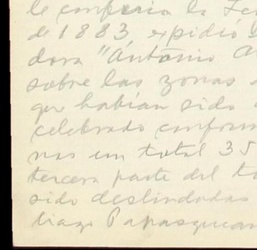 le conferia la Ley
de 1883 expidió
dora "Antonio A
sobre las zonas
que habían sido
celebrado conform
nas un total 35
tercera parte del t
sido deslindadas
tiago Papasquiar